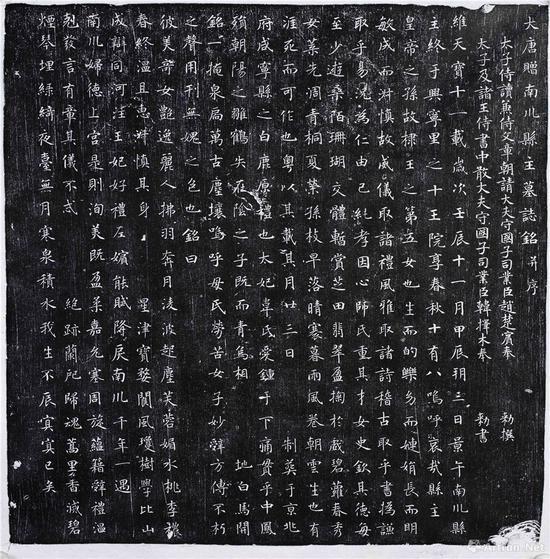 大唐贈南川縣主墓誌銘并序
太子侍讀兼侍文章朝請大夫守國子司業臣趙楚賓奉 勅撰
太子及諸王侍書中散大夫守國子司業臣韓擇木奉 勅書
維天寶十一載歲次壬辰十一月甲辰朔三日景午南川縣
主終于興寧里之十王院享春秋十有八嗚呼哀哉縣主
皇帝之孫故棣王之第五女也生而的皪夕而婕娟長而明
敏成而淑慎故威儀取諸禮風雅取諸詩稽古取乎書撝謙
取乎易況為仁由己純孝因心師氏重其才女史欽其德每
至少遊桑陌珊瑚交體暫賞芝田翡翠盈掬於戲碧蘿春秀
女蕙先凋青桐夏榮孫枝早落晴寒暮雨風卷朝雲生也有
涯死而可作也粵以其載其月廿三日 制葬于京兆
府咸寧縣之白鹿原禮也太妃韋氏愛鍾于下痛貫乎中鳳
殞朝陽之雛鶴失在陰之子既而青烏相 地白馬開
銘一掩泉扃萬古塵壤嗚呼母氏勞苦女子妙辭方傳不朽
之聲用刊無媿之色也銘曰
彼美齊女艷逸麗人拂羽奔月淩波起塵芙蓉媚水桃李穠
春終溫且惠淑慎其身 星津寶婺閬風瓊樹學比山
成辯同河注王妃好禮左嬪能賦降戾南川千年一遇
南川婦德上宮是則洵美既盈柔嘉允塞周旋蘊籍辭禮溫
剋發言有章其儀不忒 絕跡蘭戺歸魂蒿里香滅碧
煙琴埋綠綺夜臺無月寒泉積水我生不辰冥冥已矣